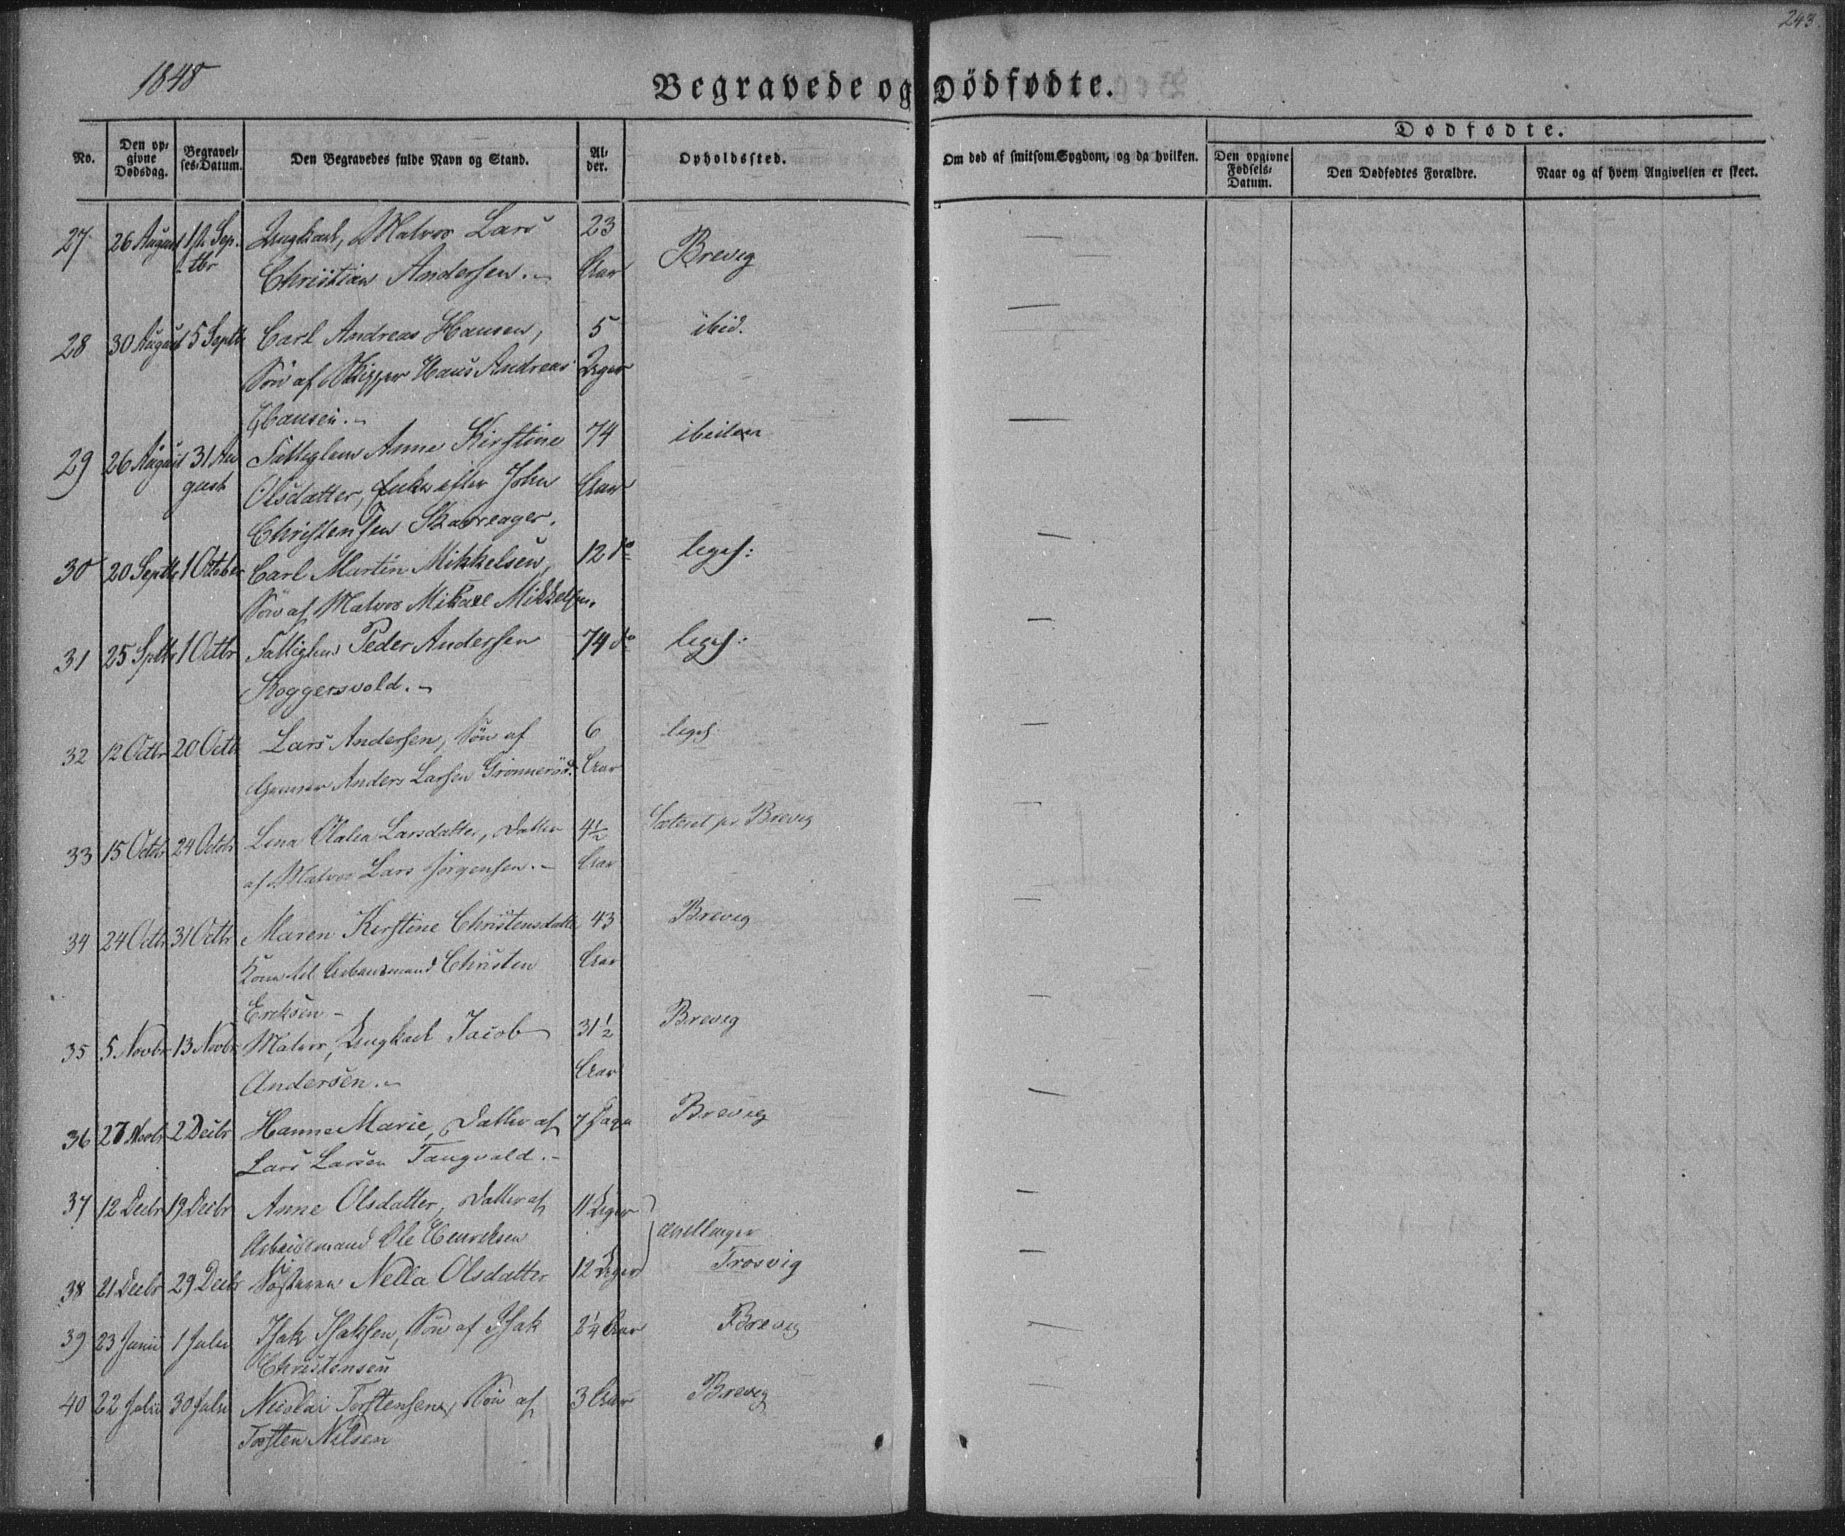 243.
1848
Begravede og Dödfödte.
No.
Den op-
givne
Dødsdag.
Begravel-
ses-Datum.
Den Begravedes fulde Navn og Stand.
Al-
der.
Opholdssted.
Om død af smitsom Sygdom, og da hvilken.
Dødfødte.
Den opgivne
Fødsels-
Datum.
Den Dødfødtes Forældre.
Naar og af hvem Angivelsen er skeet.
27 26 August 1st Sep- Ungkarl, Matros Lars 23 Brevig
tbr Christian Andersen. Aar
28 30 August 5 Septbr Carl Andreas Hansen, 5 ibid.
Søn af Skipper Hans Andreas Uger
Hansen.
29 26 August 31 Au- Fattiglem Anne Kirstine 74 ibidem
gust Olsdatter, Enke efter John Aar
Christensen
30 20 Septbr 1 October Carl Martin Mikkelsen, 12 do
Søn af Matros Mikael Mikkelsen.
31 25 Septbr 1 Octbr Fattiglem Peder Andersen 74 do
Roggersvold.
32 12 Octbr 20 Octbr Lars Andersen, Søn af 6
Anders Larsen Grønnerød. Aar
33 15 Octbr 24 Octbr Lena Olalia Larsdatter, Datter 4½ Sæteret pr Brevig
af Matros Lars Jørgensen. Aar
34 24 Octbr 31 Octbr Maren Kirstine Christensdatter 43 Brevig
Kone til Arbeidsmand Christen Aar
Ericksen
35 5 Novbr 13 Novbr Matros, Ungkarl Jacob 31½ Brevig
Andersen. Aar
36 27 Novbr 2 Decbr Hanne Marie, Datter af 7 Dage Brevig
Lars Larsen Tangvald.
37 12 Decbr 19 Decbr Anne Olsdatter, Datter af 11 Uger
Arbeidsmand Ole Henriksen Tvillinger
38 21 Decbr 29 Decbr Søsteren Nella Olsdatter 12 Uger Trosvig
39 23 Junii 1 Julii Isak Isaksen, Søn af Isak 2¼ Aar Brevig
Christensen
40 22 Julii 30 Julii Nicolai Torstensen, Søn af 3 Aar Brevig
Torsten Nilsen